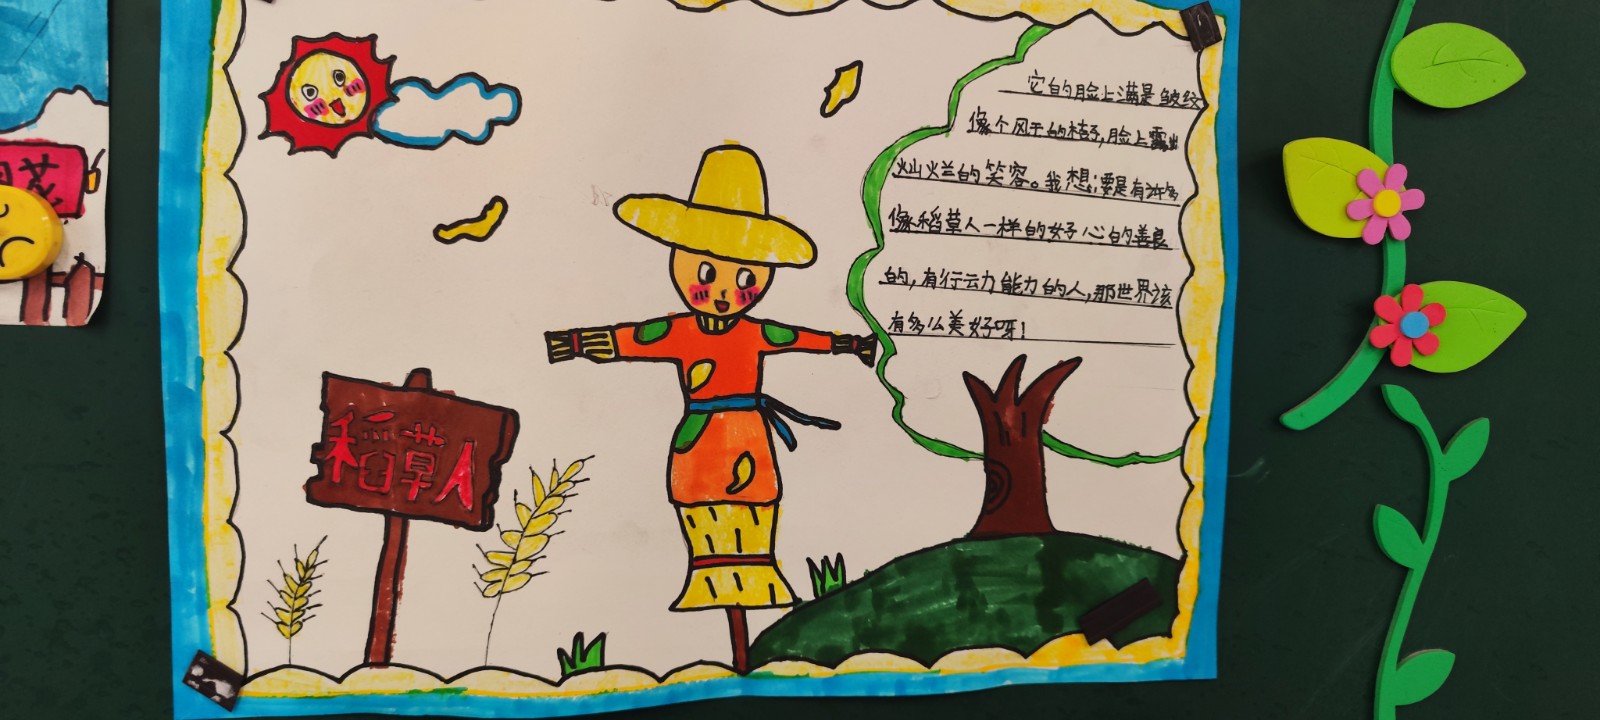 稻草人
它的脸上满是皱纹
像个风干的桔子,脸上露出
灿烂的笑容。我想:要是有许多
像稻草人一样的好心的善良
的,有行云力能力的人,那世界该
有多么美好呀!